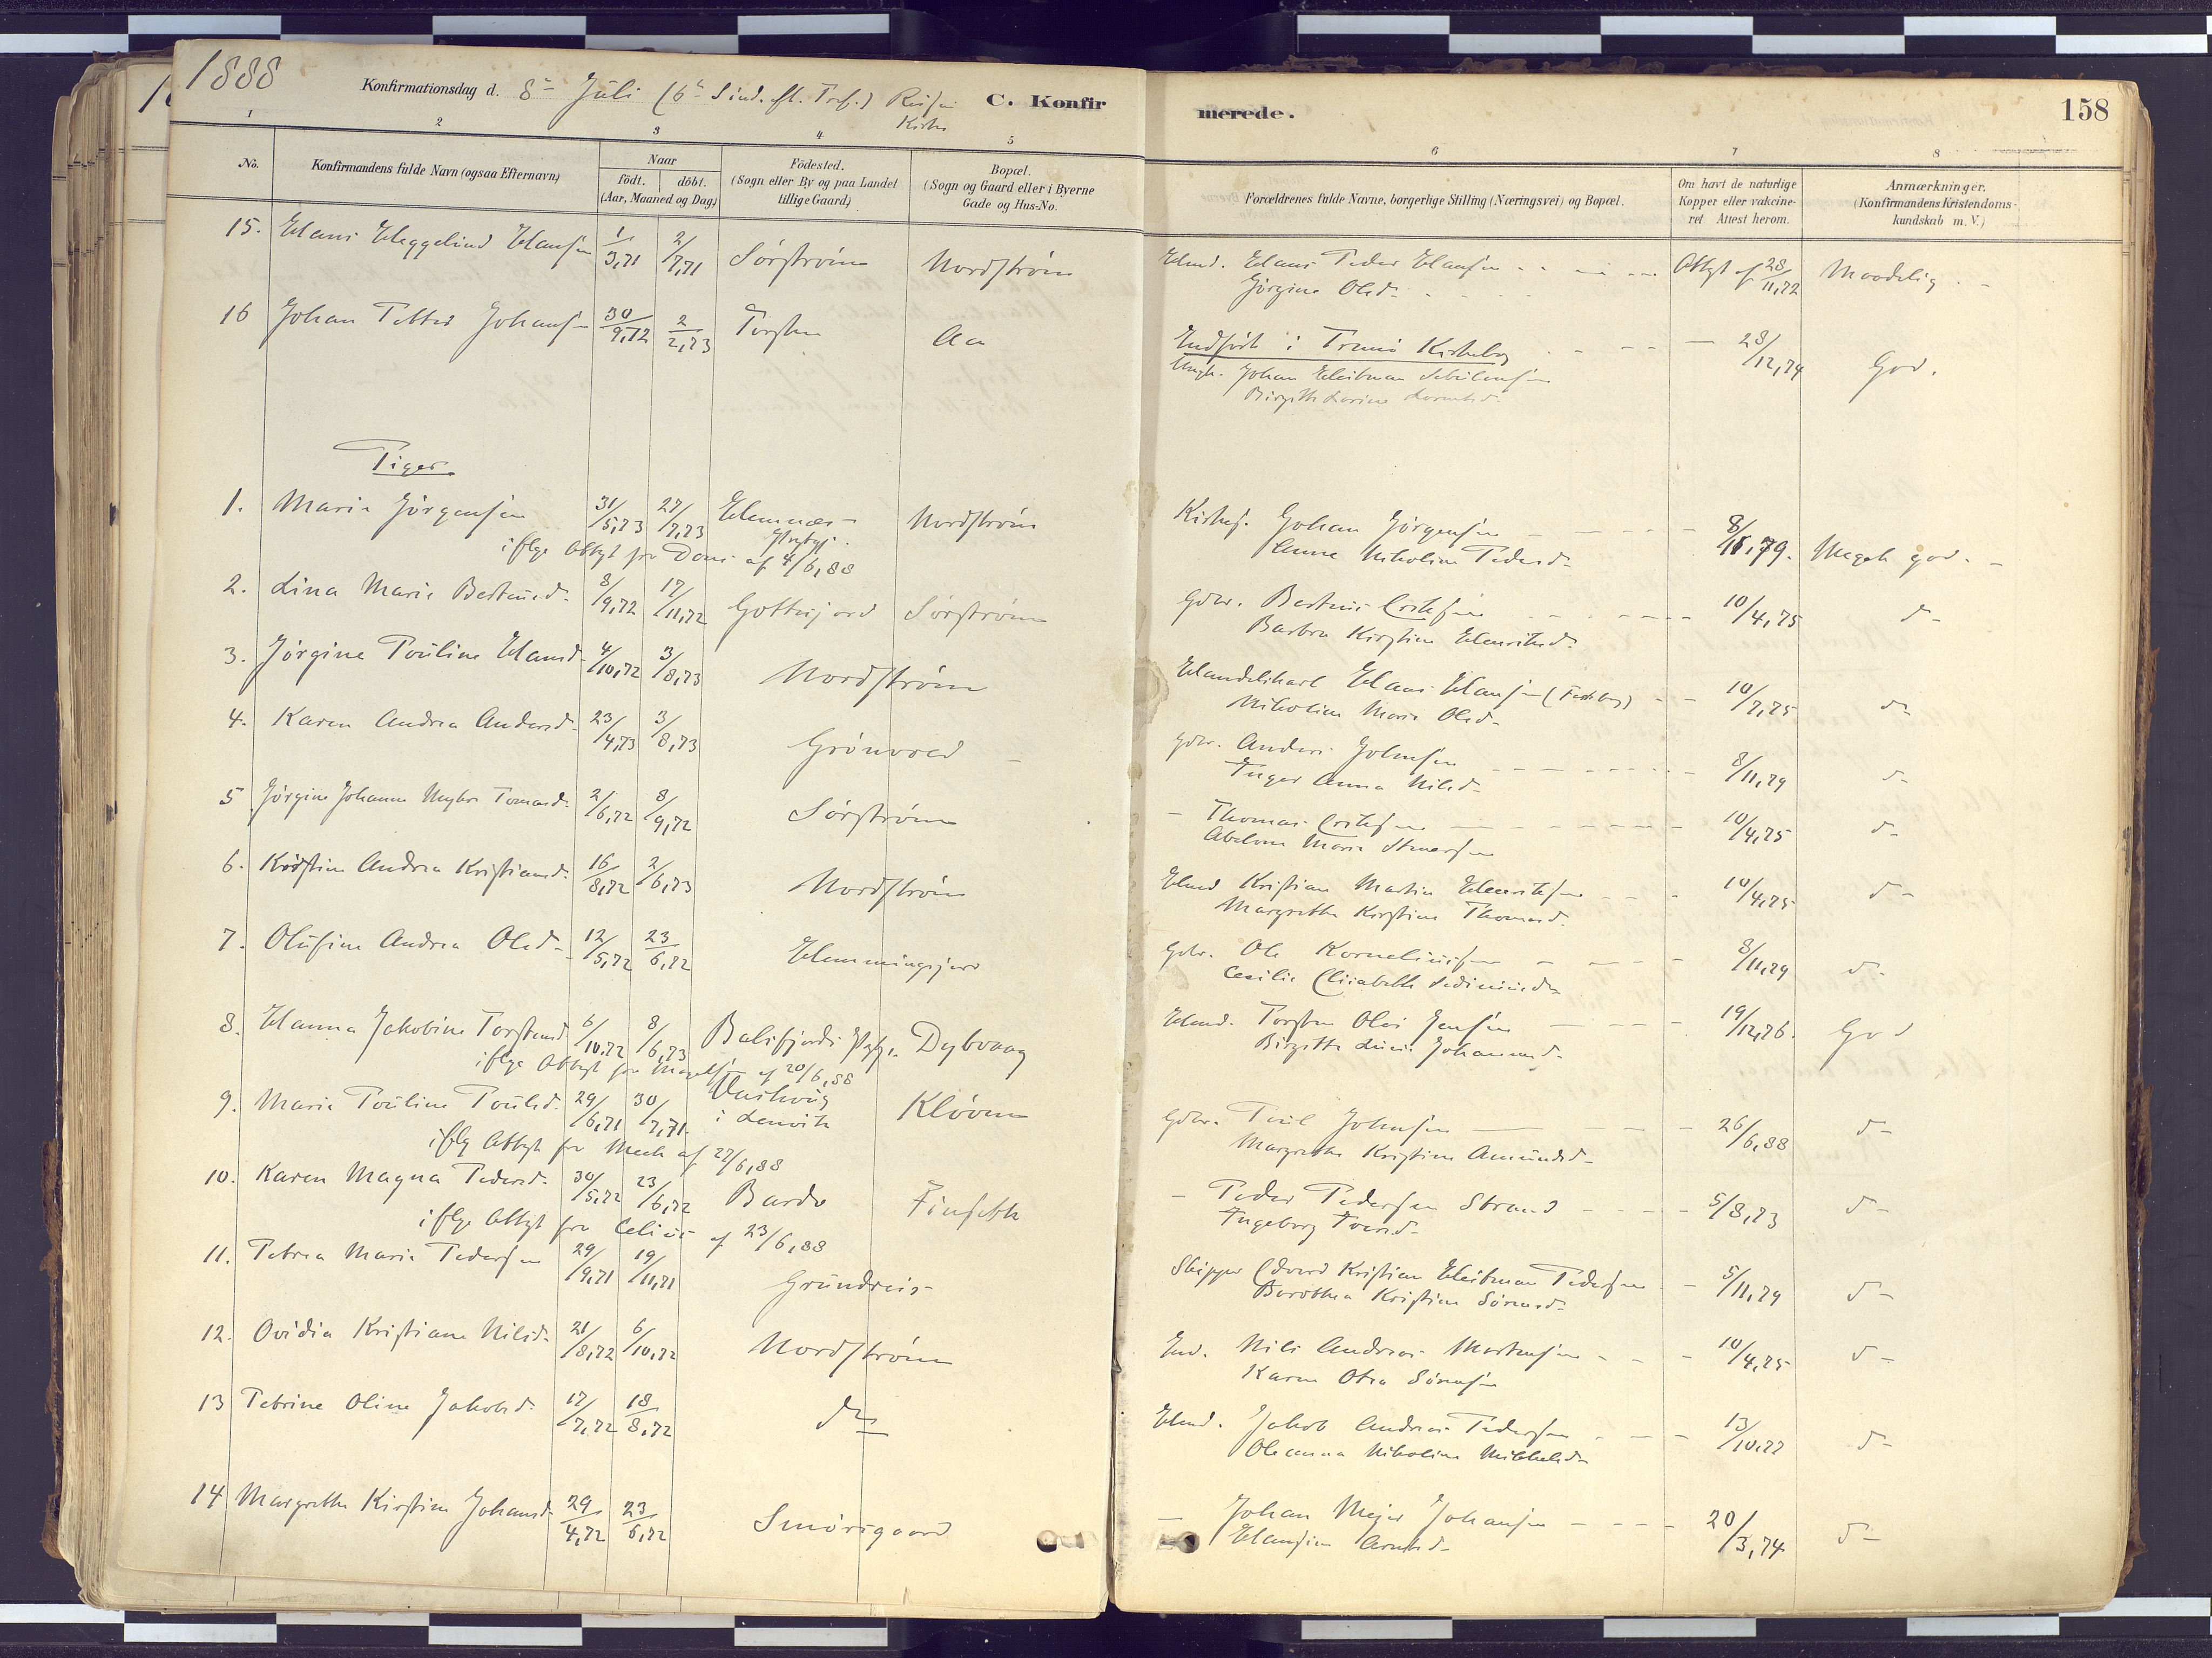 1888
Konfirmationsdag d. 8de Juli (6te Sønd. fl. Tref.)
Kirke
C. Konfir
merede.
158
1 2 3 4 5 6 7 8
No.
Konfirmandens fulde Navn (ogsaa Efternavn)
Naar
födt. döbt.
(Aar, Maaned og Dag)
Födested.
(Sogn eller By og paa Landet
tillige Gaard)
Bopæl.
(Sogn og Gaard eller i Byerne
Gade og Hus-No.
Forældrenes fulde Navne, borgerlige Stilling (Næringsvei) og Bopæl.
Om havt de naturlige
Kopper eller vakcine-
ret Attest herom.
Anmærkninger.
(Konfirmandens Kristendoms-
kundskab m. V.)
15. Hans Heggelund Hansen 1/3,71 2/7,71 Sørstrøm Nordstrøm Husmd. Hans Peder Hansen Attest af 28/11,72 Maadelig
Jørgine Olsd.
16 Johan Petter Johansen 30/9,72 2/2,73 Torsken Aa Indført i Tromsø Kirkebog 28/12,74 God.
Ungk. Johan Heitman
Birgitte Lorine
Piger
1. Maria Jørgensen 31/5,73 27/7,73 Hemnæs Nordstrøm Kirkesj. Johan Jørgensen 8/11,79. Meget god.
Præstegj.
iflge Attest fra af 4/6,88
Anna Nikoline Pedersd.
2. Lina Marie Berteusd. 8/9,72 17/11,72 Gottesjord Sørstrøm Gdbr. Berteus Eriksen 10/4,75 do
Barbra Kirstine Henriksd.
3. Jørgine Pouline Hansd. 4/10,72 3/8,73 Nordstrøm Handelskarl Hans Hansen 10/7,75 do
Nikoline Marie Olsd.
4. Karen Andrea Andersd. 23/4,73 3/8,73 Grønvold Gdbr. Anders Johnsen 8/11,79 do
Inger Anna Nilsd.
5 Jørgine Johanne Tomasd. 2/6,72 8/9,72 Sørstrøm - Thomas Eriksen 10/4,75 do
Abelone Marie
6. Kirstine Andrea Kristiansd. 16/8,72 2/6,73 Nordstrøm Husmd Kristian Martin Henriksen 10/4,75 do
Margrethe Kirstine Thomasd.
7. Olufine Andrea Olsd. 12/5,72 23/6,72 Hemmingsjord Gdbr. Ole Korneliussen 8/11,79 do
Cecilie Elisabeth
8. Hanna Jakobine Torstensd. 6/10,72 8/6,73 Balsfjords Dybvaag Husmd. Torsten Olai Jensen 19/12,76. God
iflge Attest fra af 20/6,88
Birgitte Johannesd.
9. Marie Pouline Poulsd. 29/6,71 30/7,71 Kløven Gdbr. Poul Johnsen 26/6,88 do
i Lenvik
iflg Attest fra af 27/6,88
Margrethe Kristine Amundsd.
10. Karen Magna Pedersd. 30/5,72 23/6,72 Bardo Finsæth - Peder Pedersen Strand 5/8,73 do
iflge Attest fra Celius af 23/6,88
Ingeborg Iversd.
11. Petrea Marie Pedersen 29/9,71 19/11,71 Grundreis Skipper Edvard Kristian Heitman Pedersen 5/11,79 do
Dorothea Kristine Sørensd.
12. Ovidia Kristiane Nilsd. 21/8,72 6/10,72 Nordstrøm Nils Andreas Mortensen 10/4,75 do
Karen Otea Sørensen
13 Petrine Oline Jakobsd. 17/7,72 18/8,72 do Husmd. Jakob Andreas Pedersen 13/10,77 do
Oleanna Nikoline Mikkelsd.
14 Margrethe Kirstine Johansd. 29/4,72 23/6,72 Smørsgaard - Johan Mejer Johansen 20/3,74 do
Hansine Arntsd.